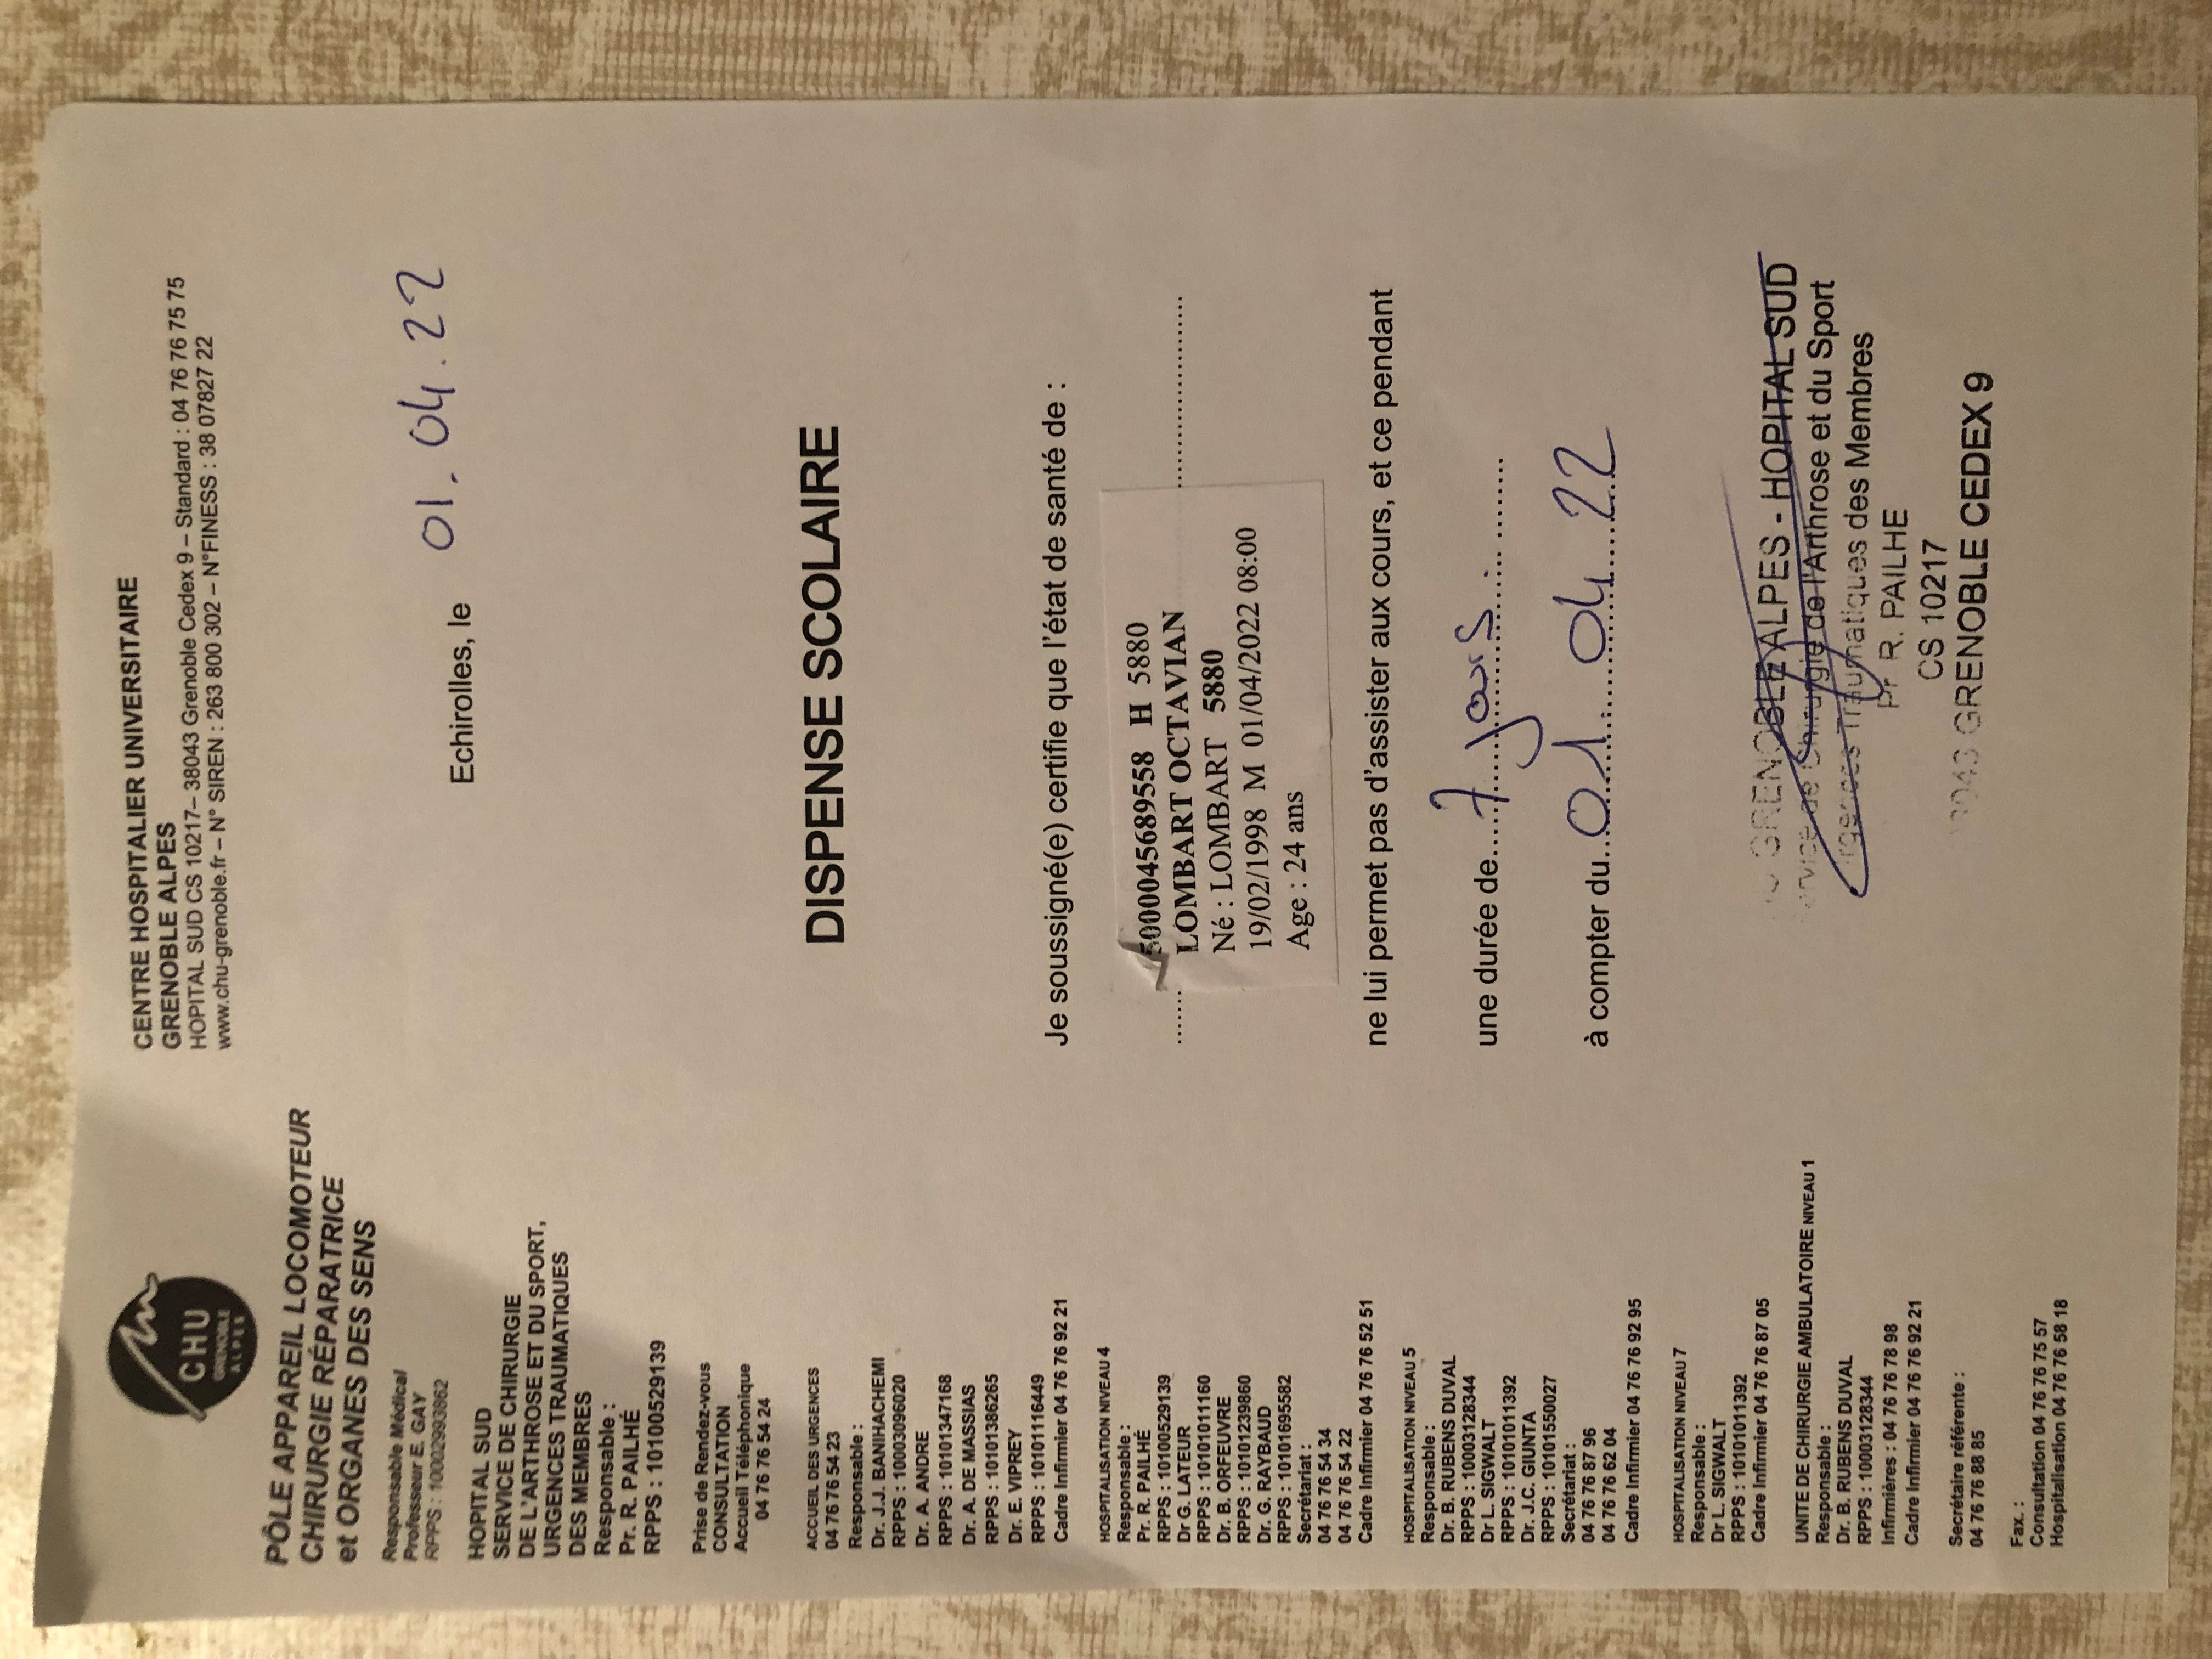 CHU
GRENOBLE
ALPES
PÔLE APPAREIL LOCOMOTEUR
CHIRURGIE RÉPARATRICE
et ORGANES DES SENS
Responsable Médical
Professeur E. GAY
RPPS : 10002993862
HOPITAL SUD
SERVICE DE CHIRURGIE
DE L'ARTHROSE ET DU SPORT,
URGENCES TRAUMATIQUES
DES MEMBRES
Responsable :
Pr. R. PAILHÉ
RPPS : 10100529139
Prise de Rendez-vous
CONSULTATION
Accueil Téléphonique
04 76 76 54 24
ACCUEIL DES URGENCES
04 76 76 54 23
Responsable :
Dr. J.J. BANIHACHEMI
RPPS : 10003096020
Dr. A. ANDRE
RPPS : 10101347168
Dr. A. DE MASSIAS
RPPS : 10101386265
Dr. E. VIPREY
RPPS : 10101116449
Cadre Infirmier 04 76 76 92 21
HOSPITALISATION NIVEAU 4
Responsable :
Pr. R. PAILHÉ
RPPS : 10100529139
Dr G. LATEUR
RPPS : 10101011160
Dr. B. ORFEUVRE
RPPS : 10101239860
Dr. G. RAYBAUD
RPPS : 10101695582
Secrétariat :
04 76 76 54 34
04 76 76 54 22
Cadre Infirmier 04 76 76 52 51
HOSPITALISATION NIVEAU 5
Responsable :
Dr. B. RUBENS DUVAL
RPPS : 10003128344
Dr L. SIGWALT
RPPS : 10101011392
Dr. J.C. GIUNTA
RPPS : 10101550027
Secrétariat :
04 76 76 87 96
04 76 76 62 04
Cadre Infirmier 04 76 76 92 95
HOSPITALISATION NIVEAU 7
Responsable :
Dr L. SIGWALT
RPPS : 10101011392
Cadre Infirmier 04 76 76 87 05
UNITE DE CHIRURGIE AMBULATOIRE NIVEAU 1
Responsable :
Dr. B. RUBENS DUVAL
RPPS : 10003128344
Infirmières : 04 76 76 78 98
Cadre Infirmier 04 76 76 92 21
Secrétaire référente :
04 76 76 88 85
Fax. :
Consultation 04 76 76 75 57
Hospitalisation 04 76 76 58 18
CENTRE HOSPITALIER UNIVERSITAIRE
GRENOBLE ALPES
HOPITAL SUD CS 10217– 38043 Grenoble Cedex 9 – Standard : 04 76 76 75 75
www.chu-grenoble.fr – N° SIREN : 263 800 302 – N°FINESS : 38 07827 22
Echirolles, le 01.04.22
DISPENSE SCOLAIRE
Je soussigné(e) certifie que l'état de santé de :
5000045689558 H 5880
LOMBART OCTAVIAN
Né : LOMBART 5880
19/02/1998 M 01/04/2022 08:00
Age : 24 ans
ne lui permet pas d'assister aux cours, et ce pendant
une durée de 7 jours
à compter du 01 04 22
GRENOBLE ALPES - HOPITAL SUD
Service de Chirurgie de l'Arthrose et du Sport
Urgences Traumatiques des Membres
Pr R. PAILHE
CS 10217
38043 GRENOBLE CEDEX 9